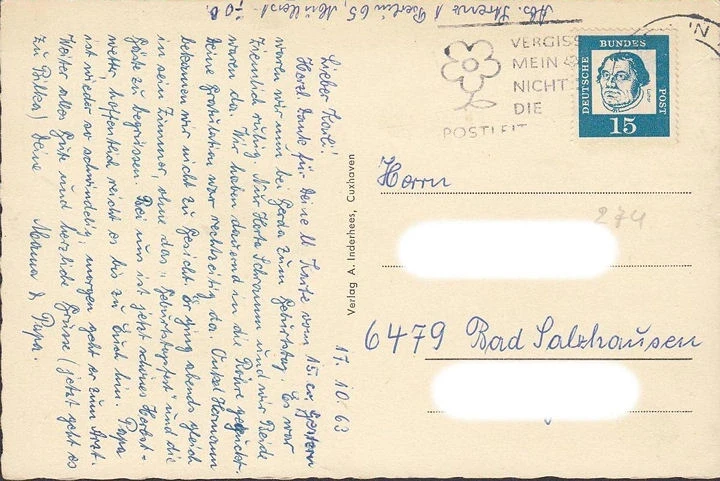 Abs. Strenz 1 Berlin 65, Müllerst. 70 b
17. 10. 63
Lieber Karli!
Herzl. Dank für Deine lb Karte vom 15. cr, gestern
waren wir nun bei Gerda zum Geburtstag. Es war
ziemlich ruhig. Nur Herta Schramm und wir Beide
waren da. Wir haben dauernd in die Röhre geguckt.
Deine Gratulation war rechtzeitig da. Onkel Hermann
bekamen wir nicht zu Gesicht. Er ging abends gleich
in sein Zimmer, ohne das „Geburtstagsfest" und die
Gäste zu begrüssen. Bei uns ist jetzt schönes Herbst-
wetter, hoffentlich reicht es bis zu Euch hin. Papa
ist wieder so schwindelig, morgen geht er zum Arzt.
Weiter alles Gute und herzliche Grüsse (jetzt geht es
zu Bilka) Deine Mama & Papa.
Verlag A. Inderhees, Cuxhaven
VERGISS
MEIN
NICHT
DIE
POSTLEIT
DEUTSCHE
BUNDES
POST
Luther
15
Herrn
274
6479 Bad Salzhausen